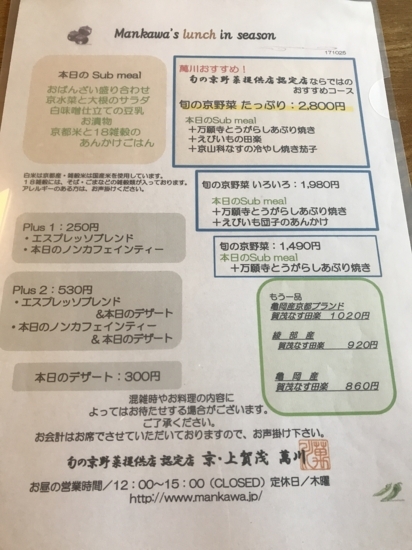 Mankawa's lunch in season
171025
本日の Sub meal
おばんざい盛り合わせ
京水菜と大根のサラダ
白味噌仕立ての豆乳
お漬物
京都米と18雑穀の
あんかけごはん
白米は京都産・雑穀米は国産米を使用しています。
18雑穀には、そば・ごまなどの雑穀類が入っております。
アレルギーのある方は、お声掛けください。
萬川おすすめ!
旬の京野菜提供店認定店ならではの
おすすめコース
旬の京野菜 たっぷり:2,800円
本日のSub meal
+万願寺とうがらしあぶり焼き
+えびいもの田楽
+京山科なすの冷やし焼き茄子
旬の京野菜 いろいろ:1,980円
本日のSub meal
+万願寺とうがらしあぶり焼き
+えびいも団子のあんかけ
旬の京野菜:1,490円
本日のSub meal
+万願寺とうがらしあぶり焼き
Plus 1:250円
・エスプレッソブレンド
・本日のノンカフェインティー
Plus 2:530円
・エスプレッソブレンド
&本日のデザート
・本日のノンカフェインティー
& 本日のデザート
本日のデザート:300円
もう一品
亀岡産京都ブランド
賀茂なす田楽 1020円
綾部産
賀茂なす田楽 920円
亀岡産
賀茂なす田楽 860円
混雑時やお料理の内容に
よってはお待たせする場合がございます。
ご了承ください。
お会計はお席でさせていただいておりますので、お声掛け下さい。
旬の京野菜提供店 認定店 京・上賀茂 萬川
お昼の営業時間/12:00~15:00 (CLOSED) 定休日/木曜
http://www.mankawa.jp/